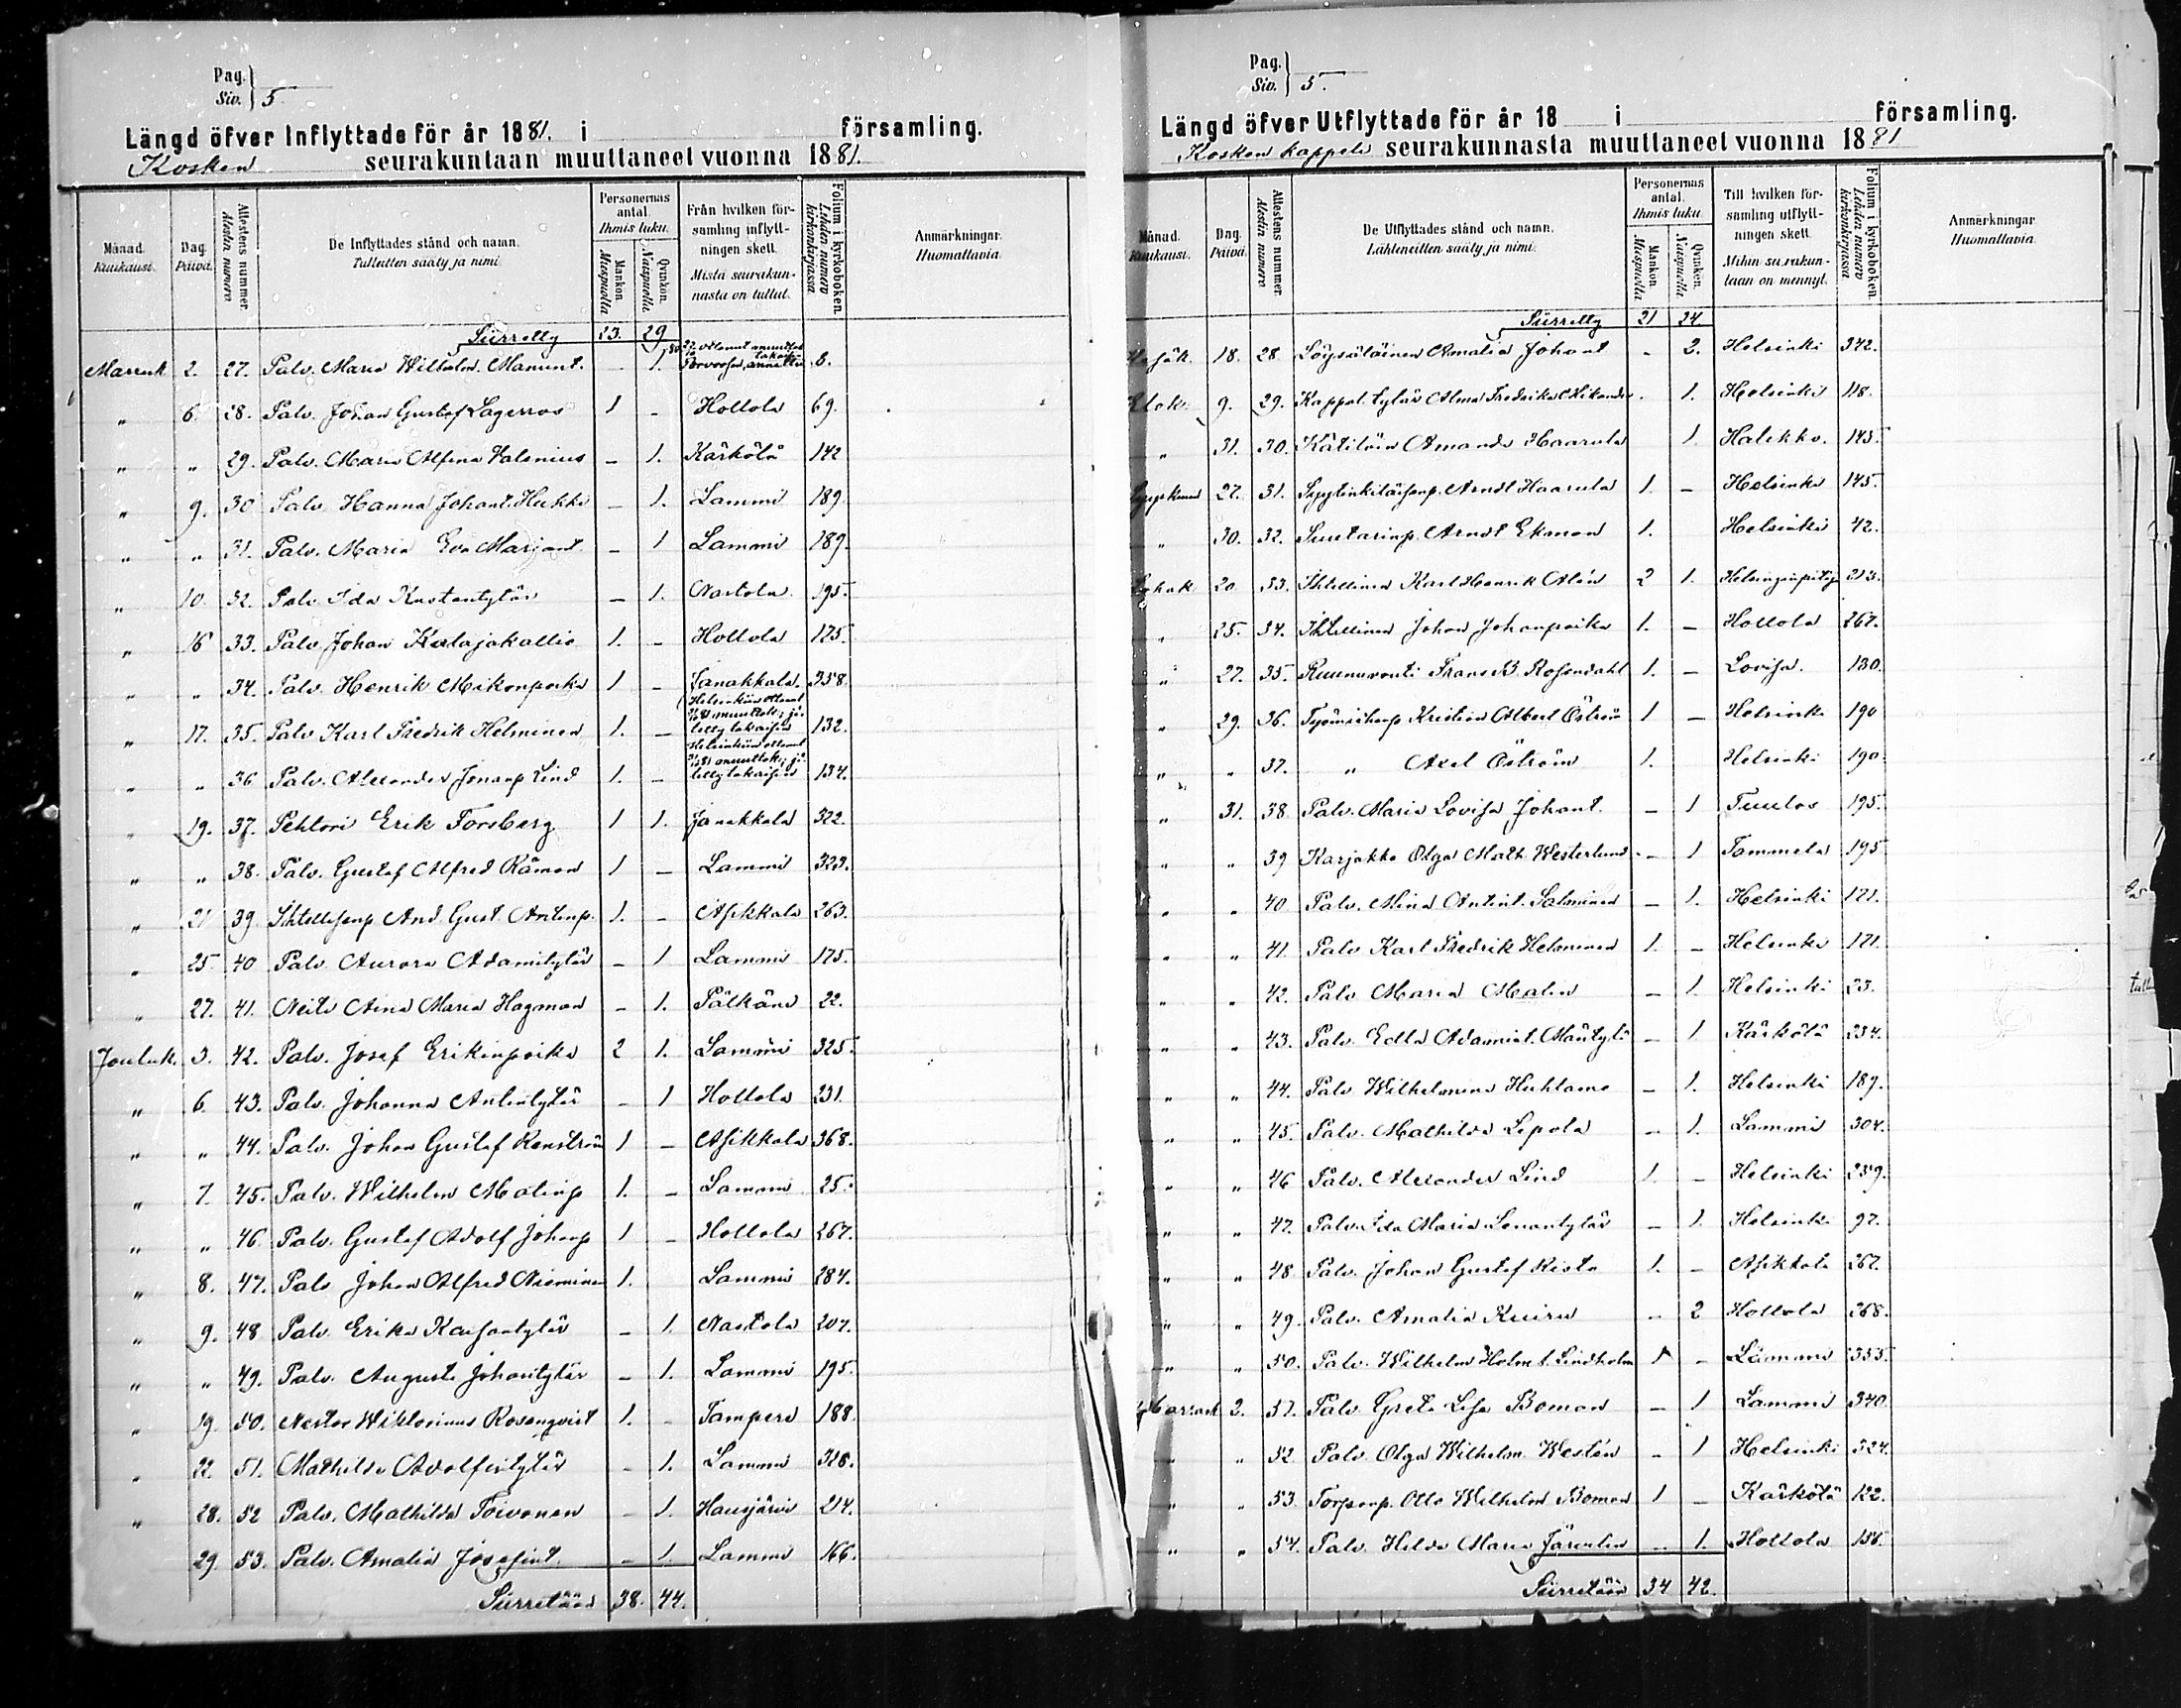 Pag.
Siv. 5.
Längd öfver Inflyttade för år 1881. i församling.
Kosken seurakuntaan muuttaneet vuonna 1881.
Månad. Kuukausi.
Dag. Päivä.
Attestens nummer. Atestin numero
De Inflyttades stånd och namn. Tulleitten sääty ja nimi.
Personernas antal. Ihmis luku.
Mankön. Miespuolia
Qvinkön. Naispuolia.
Från hvilken församling inflyttningen skett. Mistä seurakunnasta on tullut.
Folium i kyrkoboken. Lehden numero kirkonkirjassa
Anmärkningar. Huomattavia.
Siirretty 23. 29
Marrask 2. 27. Palv. Maria Wilhelm. Manunt. - 1. 6.
" 6. 28. Palv. Johan Gustaf Lagerroos 1 - Hollola 69.
" " 29. Palv. Maria Alfina Valenius - 1. Kärkölä 142
" 9. 30 Palv. Hanna Johant. Hukki - 1. Lammi 189.
" " 31. Palv. Maria Eva Marjant. - 1 Lammi 189.
" 10. 32. Palv. Ida Kustantytär - 1. Nastola 195.
" 16 33. Palv. Johan Katajakallio 1. - Hollola 175.
" " 34. Palv. Henrik Mikonpoika 1 - Janakkala. 358.
" 17. 35. Palv. Karl Fredrik Helminen 1. - 132.
" " 36 Palv. Alexander Jonanp Lind 1. - 134.
" 19. 37. Pehtori Erik Forsberg 1 1. Janakkala 322.
" " 38. Palv. Gustaf Alfred Råman 1 - Lammi 323.
" 21 39. Ihtellisenp And. Gust. Antinp. 1. - Asikkala 263.
" 25. 40 Palv. Aurora Adamitytär - 1 Lammi 175.
" 27. 41. Neito Aina Maria Hagman - 1. Pälkäne 22.
Jouluk. 3. 42. Palv. Josef Erikinpoika 2 1. Lammi 325.
" 6. 43. Palv. Johanna Antintytär - 1 Hollola 231.
" " 44. Palv. Johan Gustaf Renström 1 - Asikkala 368.
" 7. 45. Palv. Wilhelm Matinp 1. - Lammi 25.
" " 46. Palv. Gustaf Adolf Johanp 1 - Hollola 267.
" 8. 47. Palv Johan Alfred Nieminen 1. Lammi 284.
" 9. 48 Palv. Erika Kaisantytär - 1. Nastola 207.
" " 49. Palv. Augusta Johantytär - 1. Lammi 195.
" 19. 50. Nestor Wiktorinus Rosenqvist 1. - Tampere 188.
" 22. 51. Mathilda Adolfintytär - 1. Lammi 328.
" 28. 52 Palv. Mathilda Toivonen - 1. Hausjärvi 214.
29. 53. Palv. Amalia Josefint. - 1. Lammi 166.
Siirretään 38. 44.
Pag.
Siv. 5.
Längd öfver Utflyttade för år 18 i församling.
Kosken kappeli seurakunnasta muuttaneet vuonna 1881
Månad. Kuukausi.
Dag. Päivä.
Attestens nummer. Atestin numero
De Utflyttades stånd och namn. Lähteneitten sääty ja nimi.
Personernas antal. Ihmis luku.
Mankön. Miespuolia
Qvinkön. Naispuolia
Till hvilken församling utflyttningen skett. Mihin seurakuntaan on mennyt.
Folium i kyrkoboken. Lehden numero kirkonkirjassa
Anmärkningar. Huomattavia.
Siirretty 21 24.
Kesäk. 18. 28 Löysäläinen Amalia Johant - 2. Helsinki 342.
Elok. 9. 29. Kappal. tytär Alma Fredrika Nikander - 1. Helsinki 118.
" 31. 30. Kätilöin Amanda Haarula 1. Halikko. 145.
Syyskuu 27. 31. Arndt Haarula 1. - Helsinki 145.
" 30. 32. Suutarinp. Arndt Ekman 1. Helsinki 42.
Lokak 20 33. Ihtellinen Karl Henrik Alén 2 1. Helsinginpitäjä 213.
" 25. 34. Ihtellinen Johan Johanpoika 1. - Hollola 267.
" 27. 35. Ruununvouti Frans B. Rosendahl 1. - Lovisa. 130.
" 29. 36. Kristian Albert Öström 1 - Helsinki 190
" " 37. " Axel Öström 1. Helsinki 190.
" 31. 38. Palv. Maria Lovisa Johant. - 1 Tuulos 195.
" " 39 Karjakko Olga Math. Westerlund - 1 Tammela 195
" " 40 Palv. Mina Antint. Salminen - 1. Helsinki 171.
" " 41. Palv. Karl Fredrik Helminen 1. - Helsinki 171.
" " 42. Palv. Maria Malin - 1. Helsinki 23.
" " 43. Palv. Edla Adamint. Mäntylä - 1. Kärkölä 234.
" " 44. Palv Wilhelmina Huhtamo - 1. Helsinki 189.
" " 45. Palv. Mathilda Lepola - 1. Lammi 304.
" " 46 Palv. Alexander Lind 1. - Helsinki 239.
" " 47. Palv. Ida Maria - 1. Helsinki 97.
" " 48 Palv. Johan Gustaf Risto 1. - Asikkala 267.
" " 49. Palv. Amalia Kuiru - 2 Hollola 268.
" " 50. Palv. Wilhelm Lindholm 1 - Lammi 333.
Marrask 2. 51. Palv. Greta Lisa Boman - 1 Lammi 340.
" " 52 Palv. Olga Wilhelm. Westén - 1 Helsinki 324.
" " 53. Torparp. Otto Wilhelm Boman 1 - Kärkölä 122.
" " 54. Palv. Hilda Maria - 1. Hollola 156.
Siirretään 34 42.